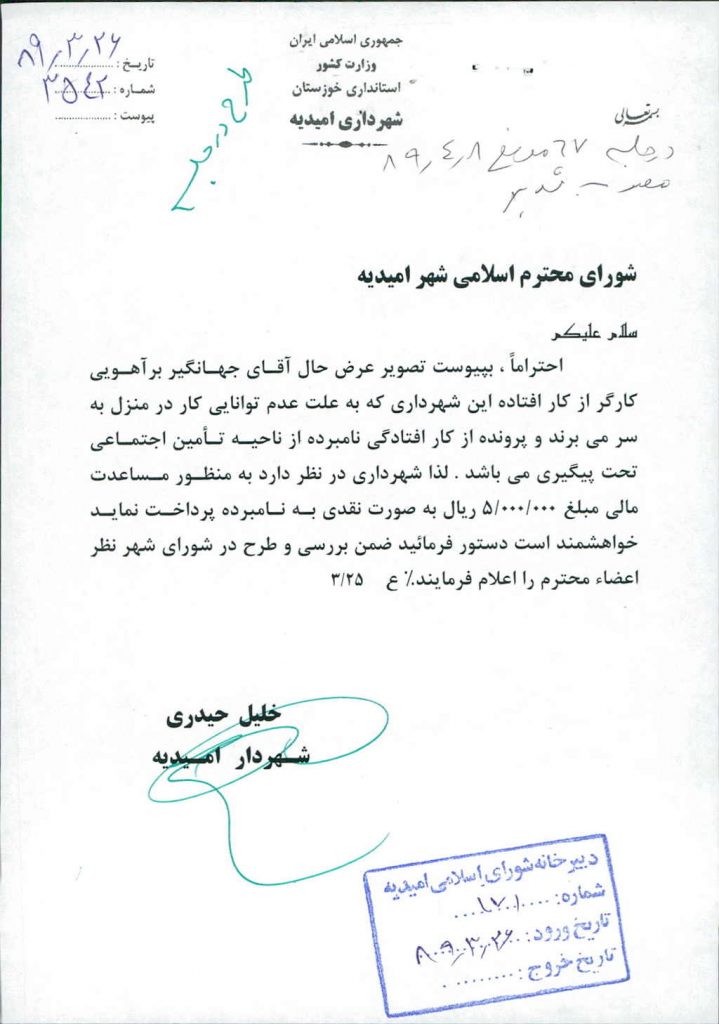 جمهوری اسلامی ایران
وزارت کشور
استانداری خوزستان
شهرداری امیدیه
تاریخ : ۸۹٫۳٫۲۶
شماره : ۳۵۴۲
پیوست :
طرح در جلسه
بسمه تعالی
در جلسه ۶۷ مورخ ۸۹٫۴٫۸
شد
شورای محترم اسلامی شهر امیدیه
سلام علیکم
احتراماً ، بپیوست تصویر عرض حال آقای جهانگیر برآهویی
کارگر از کار افتاده این شهرداری که به علت عدم توانایی کار در منزل به
سر می برند و پرونده از کار افتادگی نامبرده از ناحیه تأمین اجتماعی
تحت پیگیری می باشد . لذا شهرداری در نظر دارد به منظور مساعدت
مالی مبلغ ۵/۰۰۰/۰۰۰ ریال به صورت نقدی به نامبرده پرداخت نماید
خواهشمند است دستور فرمائید ضمن بررسی و طرح در شورای شهر نظر
اعضاء محترم را اعلام فرمایند.٪ ع ۳/۲۵
خلیل حیدری
شهردار امیدیه
دبیرخانه شورای اسلامی امیدیه
شماره: ۱۷۰۱
تاریخ ورود: ۸۹٫۳٫۲۶
تاریخ خروج :